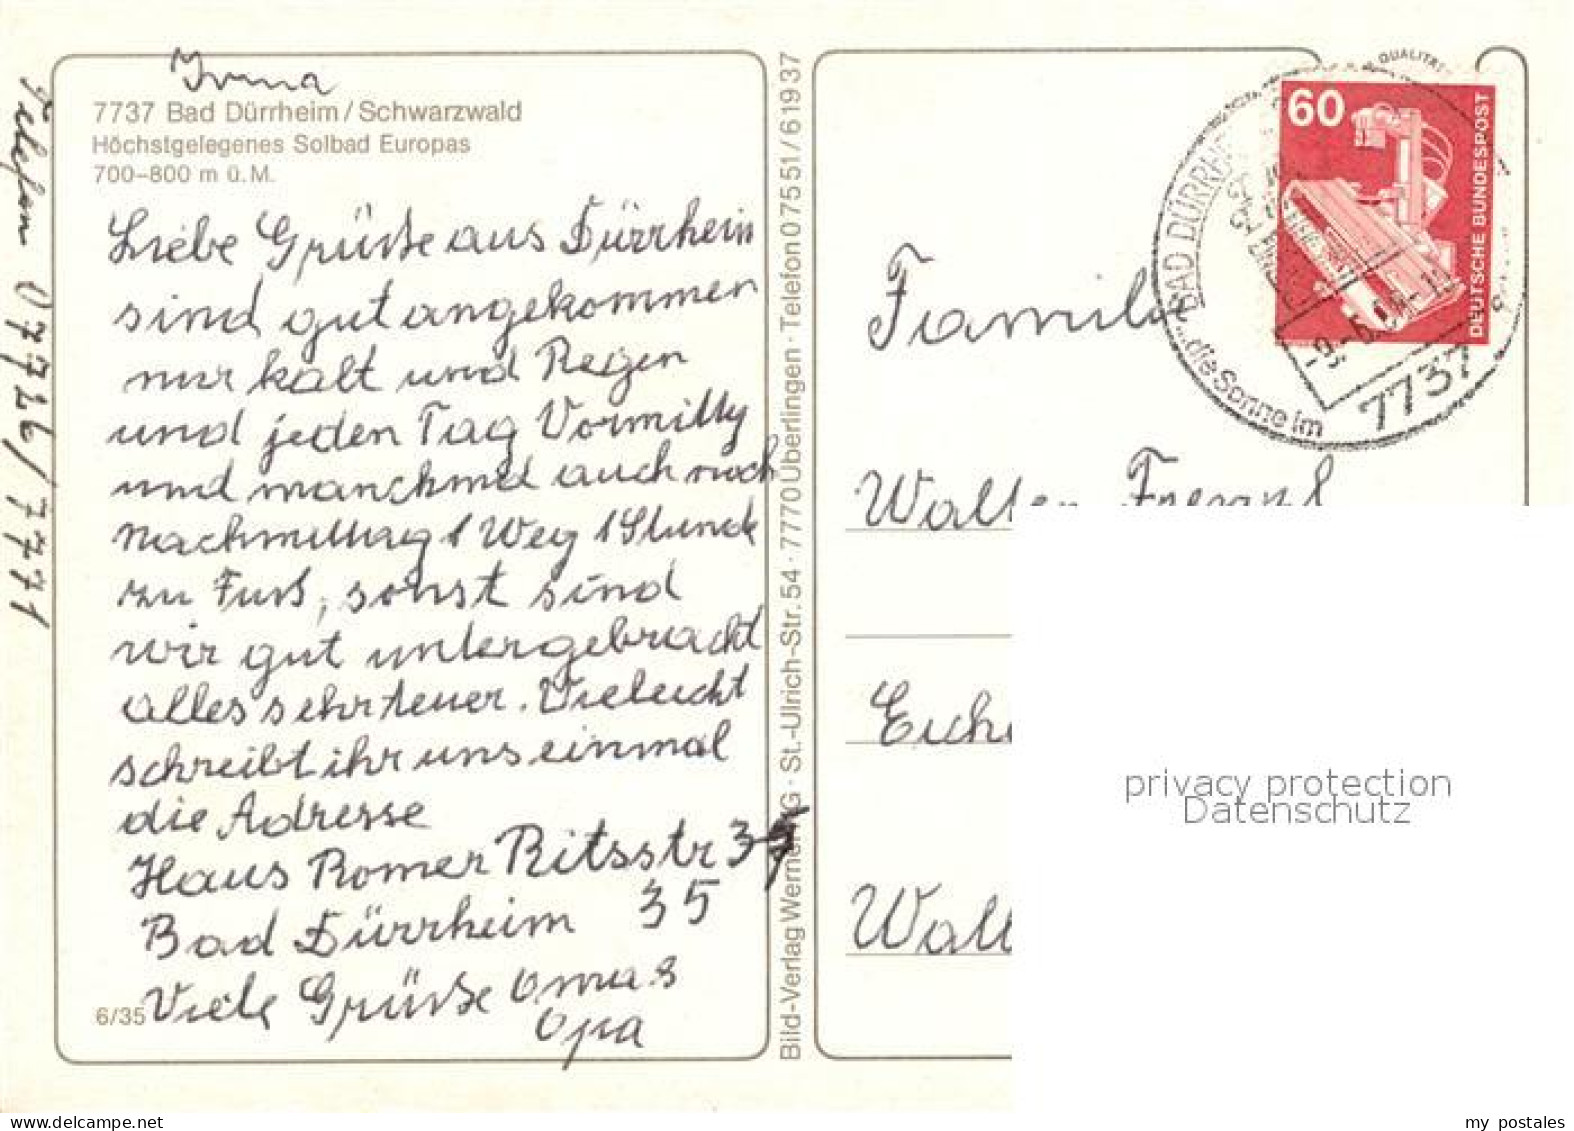 Irma
7737 Bad Dürrheim/Schwarzwald
Höchstgelegenes Solbad Europas
700–800 m ü. M.
Liebe Grüße aus Dürrheim
sind gut angekommen
nur kalt und Regen
und jeden Tag Vormittg
und manchmal auch noch
Nachmittag 1 Weg 1 Stunde
zu Fuß, sonst sind
wir gut untergebracht
alles sehr teuer. Vieleicht
schreibt ihr uns einmal
die Adresse
Haus Romer Ritsstr 35
Bad Dürrheim 35
Viele Grüße Oma &
Opa
6/35
Telefon 07726/7771
Bild-Verlag Werner · St.-Ulrich-Str. 54 · 7770 Überlingen · Telefon 0 75 51/6 19 37
QUALITÄT
60
DEUTSCHE BUNDESPOST
BAD DÜRRHEIM
...die Sonne im
7737
Familie
Walter Frenzl
Eich
Walt
privacy protection
Datenschutz
www.delcampe.net
my postales